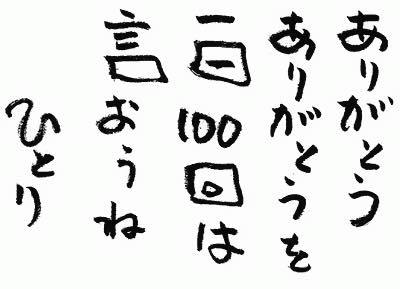 ありがとう
ありがとうを
一日100回は
言おうね
ひとり